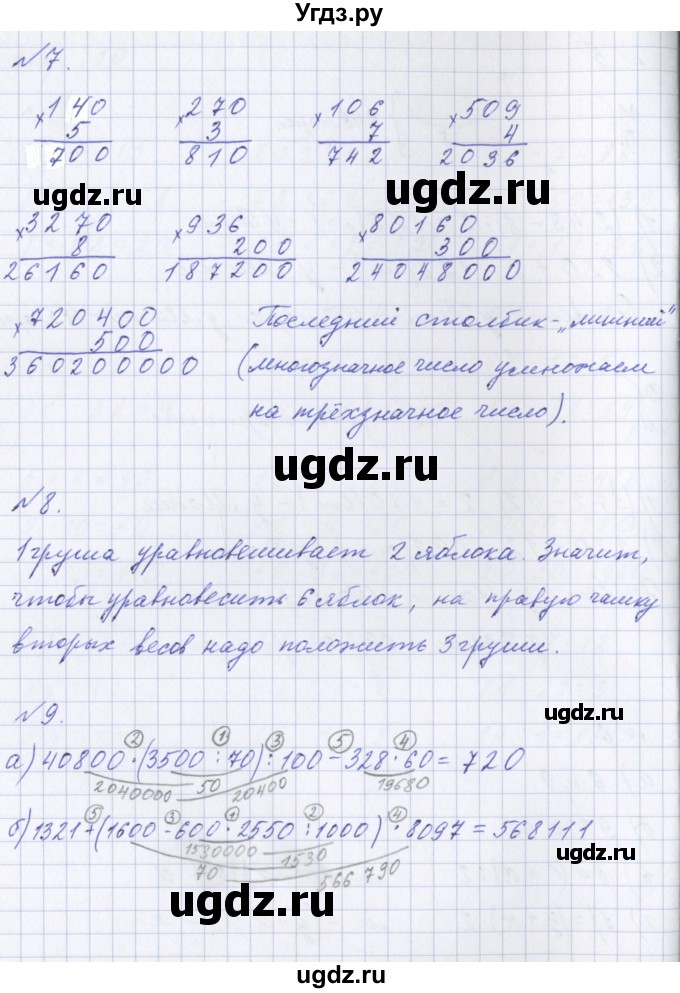 Угдз.ру
№7.
×140 ×270 ×106 ×509
5 3 7 4
700 810 742 2036
ugdz.ru ugdz.ru
×3270 ×936 ×80160
8 200 300
26160 187200 24048000
×720400 Последний столбик - „лишний"
500
360200000 (многозначное число умножаем
на трёхзначное число).
ugdz.ru
№8.
1 груша уравновешивает 2 яблока. Значит,
чтобы уравновесить 6 яблок, на правую чашку
вторых весов надо положить 3 груши.
ugdz.ru
№9.
2 1 3 5 4
а) 40800·(3500:70):100-328·60=720
2040000 50 20400 19680
5 3 1 2 4
б) 1321+(1600-600·2550:1000)·8097=568111
1530000 1530
70 566 790
ugdz.ru
ugdz.ru
ugdz.ru